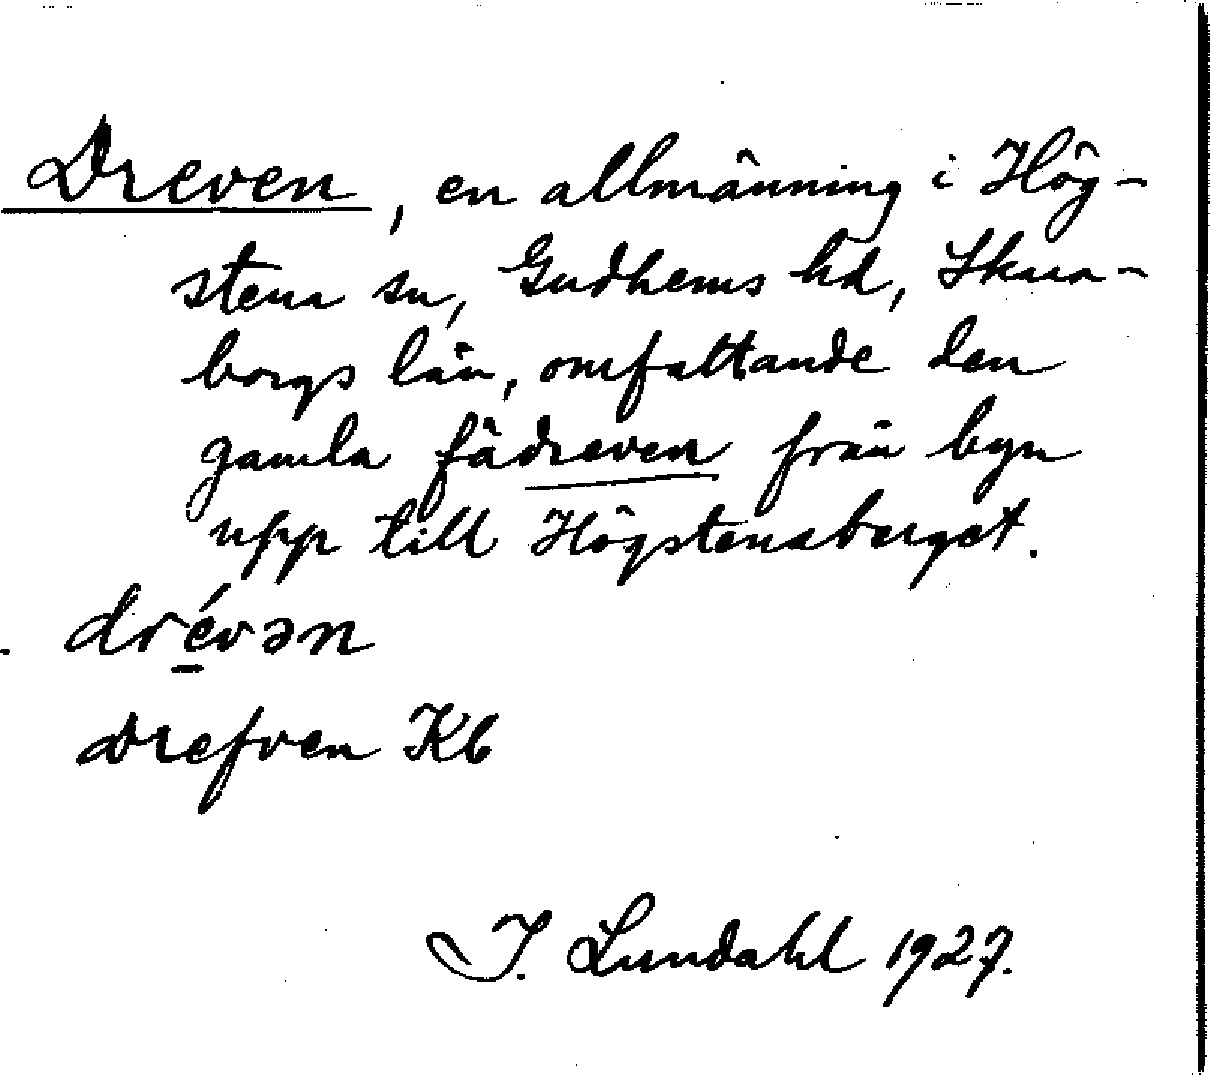 Dreven, en allmänning i Hög-
stena sn, Gudhems hd, Skara-
borgs län, omfattande den
gamla fädreven från byn
upp till Högstenaberget.
drévən
Drefven Kb
I. Lundahl 1927.